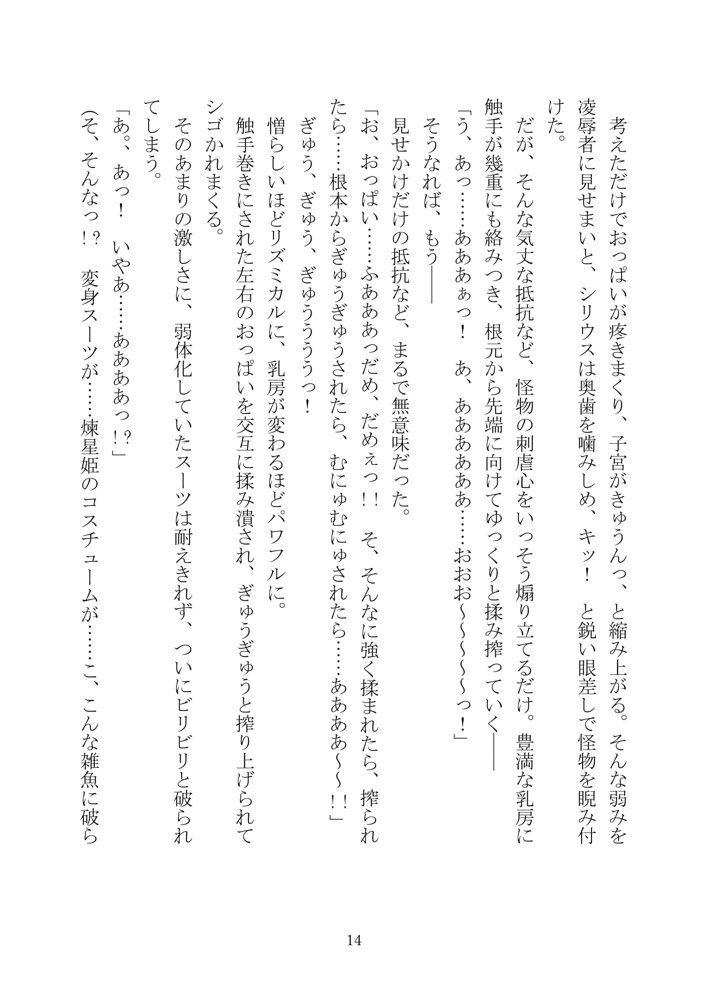 考えただけでおっぱいが疼きまくり、子宮がきゅうんっ、と縮み上がる。そんな弱みを
凌辱者に見せまいと、シリウスは奥歯を噛みしめ、キッ！　と鋭い眼差しで怪物を睨み付
けた。
だが、そんな気丈な抵抗など、怪物の刺虐心をいっそう煽り立てるだけ。豊満な乳房に
触手が幾重にも絡みつき、根元から先端に向けてゆっくりと揉み搾っていく――
「う、あっ……あああぁっ！　あ、ああああああ……おおお～～～～～っ！」
そうなれば、もう――
見せかけだけの抵抗など、まるで無意味だった。
「お、おっぱい……ふあああっだめ、だめぇっ!!　そ、そんなに強く揉まれたら、搾られ
たら……根本からぎゅうぎゅうされたら、むにゅむにゅされたら……ああああ～～!!」
ぎゅう、ぎゅう、ぎゅうううっ！
憎らしいほどリズミカルに、乳房が変わるほどパワフルに。
触手巻きにされた左右のおっぱいを交互に揉み潰され、ぎゅうぎゅうと搾り上げられて
シゴかれまくる。
そのあまりの激しさに、弱体化していたスーツは耐えきれず、ついにビリビリと破られ
てしまう。
「あ。、あっ！　いやあ……ああああっ!?」
（そ、そんなっ!?　変身スーツが……煉星姫のコスチュームが……こ、こんな雑魚に破ら
14